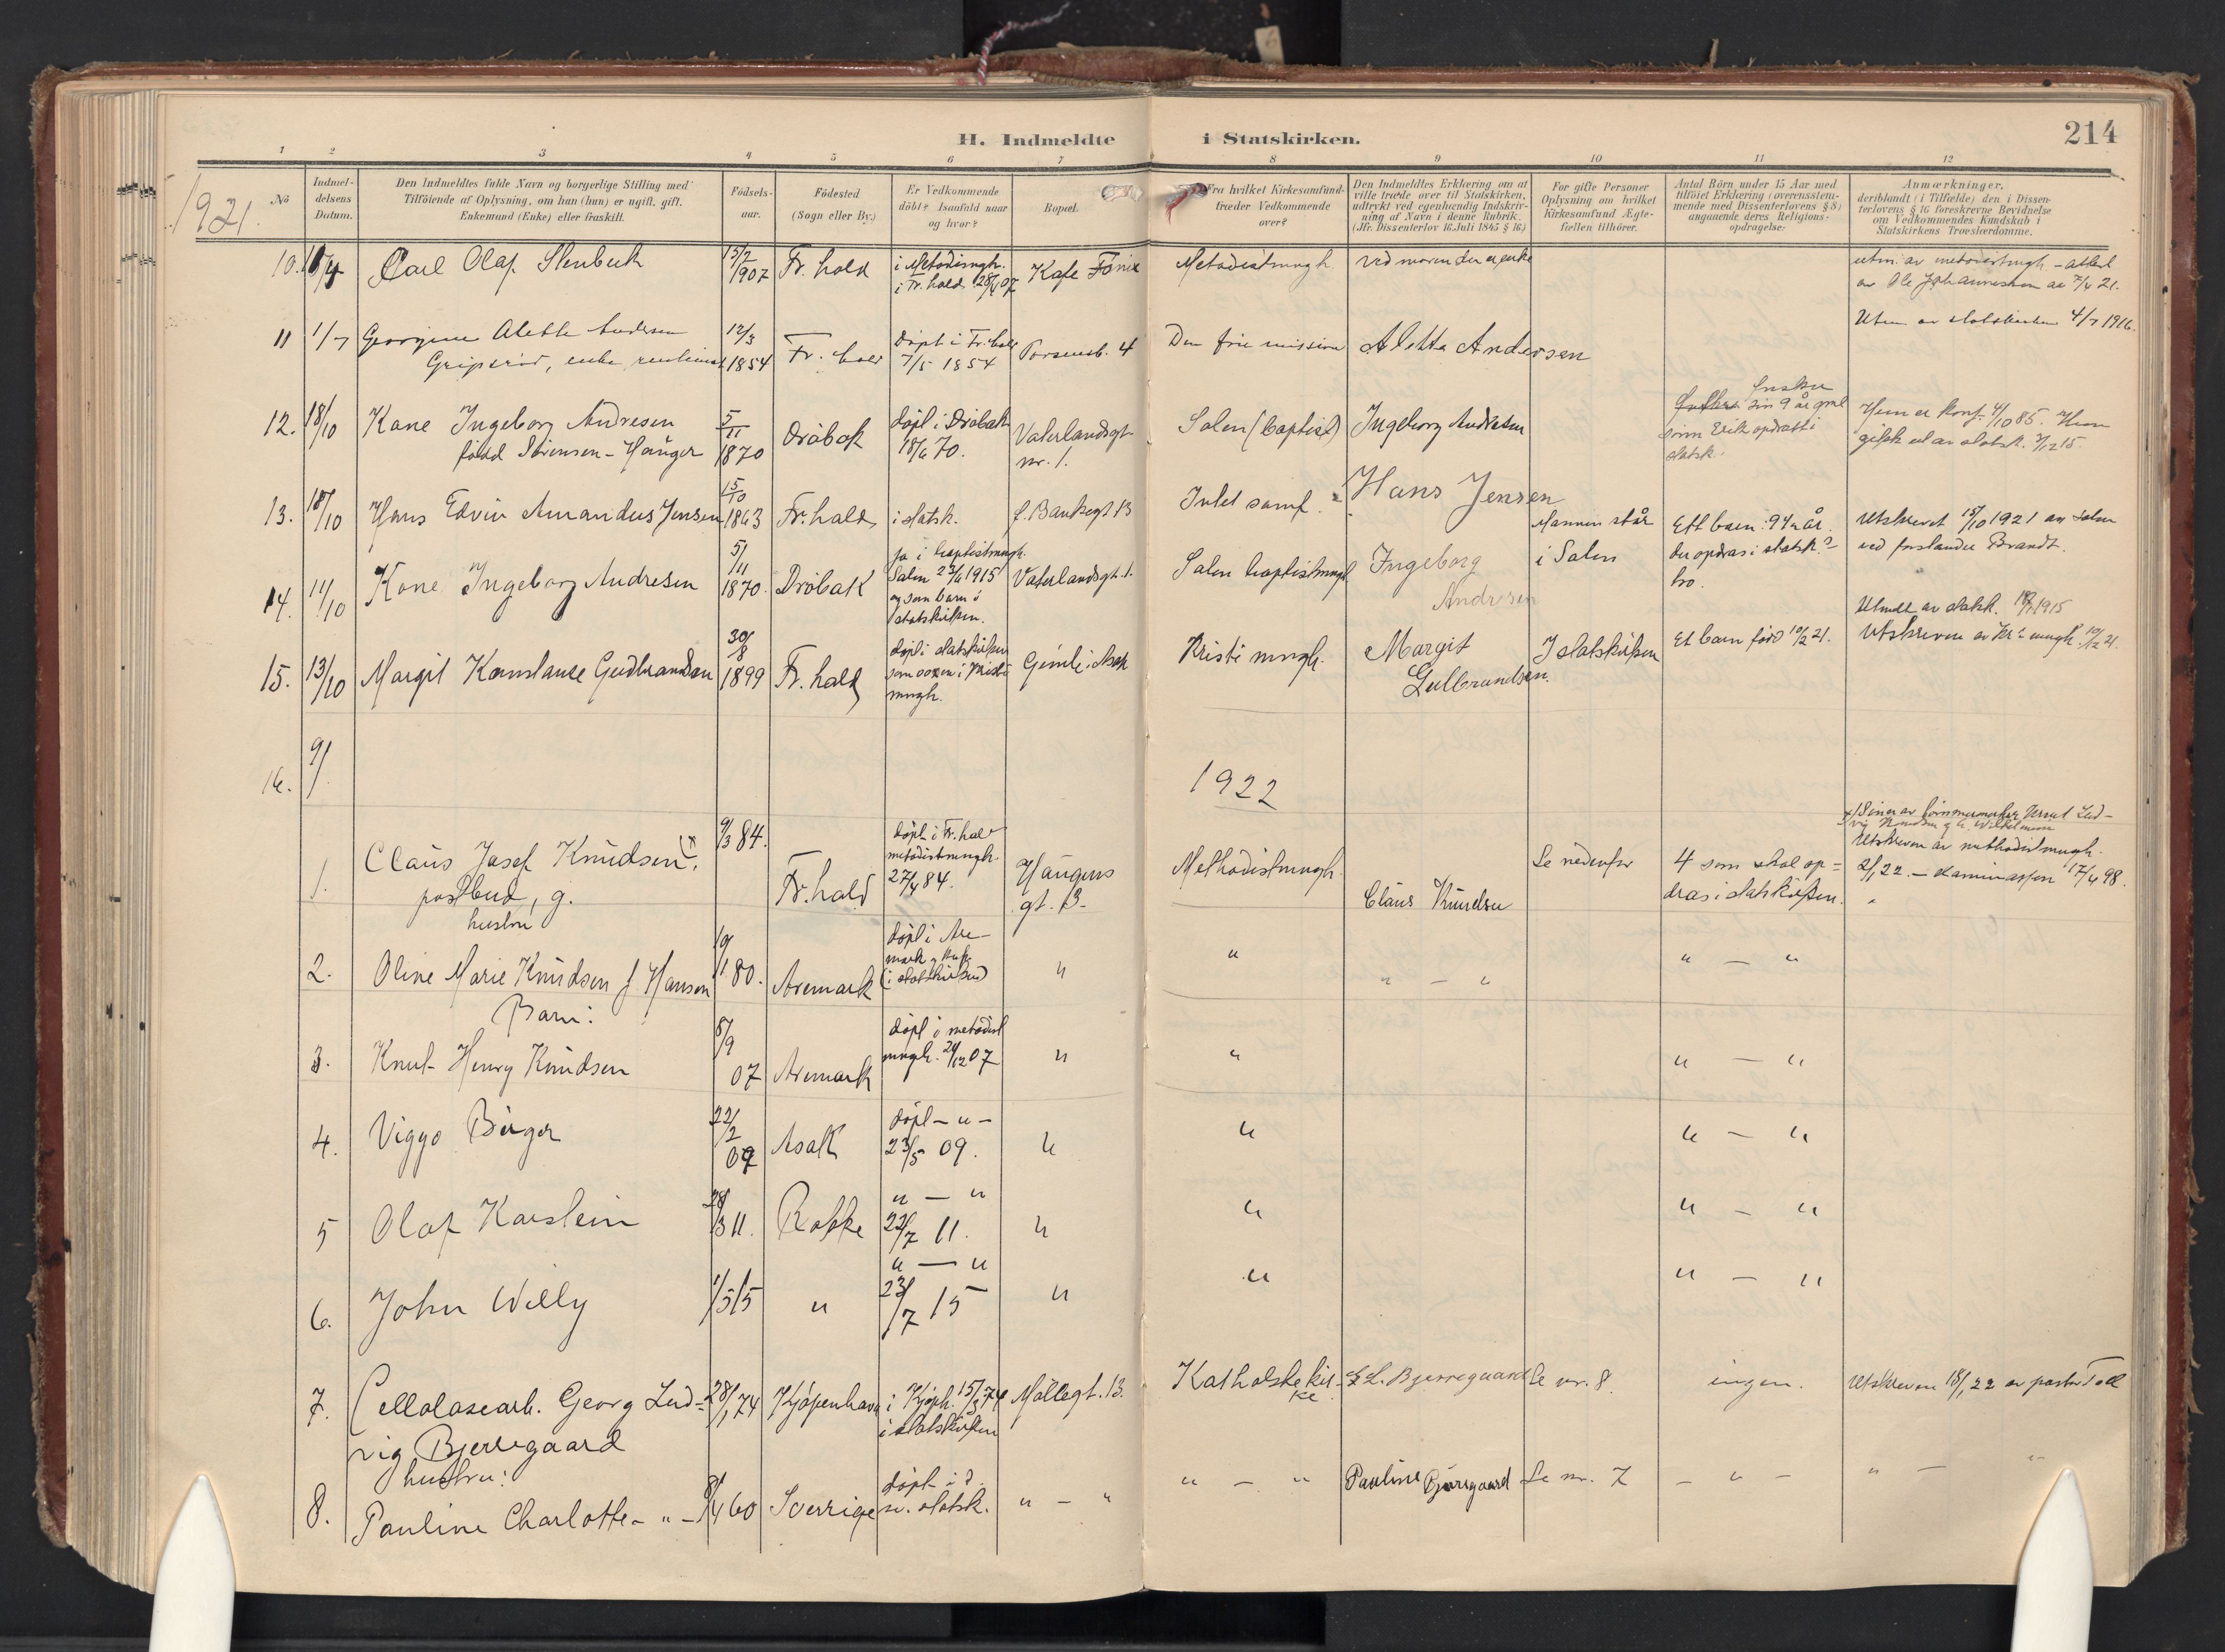 H. Indmeldte i Statskirken.
214
1 2 3 4 5 6 7 8 9 10 11 12
1921.
No
Indmel-
delsens
Datum.
Den Indmeldtes fulde Navn og borgerlige Stilling med
Tilföiende af Oplysning, om han (hun) er ugift, gift,
Enkemand (Enke) eller fraskilt.
Födsels-
aar.
Födested
(Sogn eller By.)
Er Vedkommende
döbt? Isaafald naar
og hvor?
Bopæl.
Fra hvilket Kirkesamfund
træder Vedkommende
over?
Den Indmeldtes Erklæring om at
ville træde over til Statskirken,
udtrykt ved egenhændig Indskriv-
ning af Navn i denne Rubrik.
(Jfr. Dissenterlov 16. Juli 1845 § 16.)
For gifte Personer
Oplysning om hvilket
Kirkesamfund Ægte-
fællen tilhörer.
Antal Börn under 15 Aar med
tilföiet Erklæring (overensstem-
mende med Dissenterlovens § 8)
angaaende deres Religions-
opdragelse.
Anmærkninger,
deriblandt (i Tilfælde) den i Dissen-
terlovens § 16 foreskrevne Bevidnelse
om Vedkommendes Kundskab i
Statskirkens Troeslærdomme.
10. Carl Olaf Stenbeck
15/2 1907
Fr. hald
i Metodismgh.
i Fr. hald 28/4 07
Kafe Fönix
Metodistmngh.
ved moren der er enke
utm. av metodistmngh. - attest
av Ole Johannessen av 7/4 21.
11 1/7 Georgine Alette Andersen
Gripsröd, enke,
12/3 1854
Fr. hald
döpt i Fr. hald
7/5 1854
Torsensb. 4
Den frie mission
Aletta Andersen
Utm. av statskirken 4/7 1916.
12. 18/10 Kone Ingeborg Andresen
född Sörensen - Hånger
5/11 1870
Dröbak
döpt i Dröbak
18/6 70.
Vaterlandsgt.
nr. 1.
Salen (baptist)
Ingeborg Andresen
önsker
sin 9 år gml
sönn Erik opdratt i
statsk.
Hun er konf. 4/10 85. Hun
gikk ut av statsk. 7/12 15.
13. 18/10 Hans Edvin Amandus Jensen
15/10 1863
Fr. hald
i statsk.
f. Bankegt 13
Intet samf.
Hans Jensen
Utskrevet 15/10 1921 av Salen
ved forstander Brandt.
14. 11/10 Kone Ingeborg Andresen
5/11 1870.
Dröbak
ja i baptistmngh.
Salen 23/6 1915
og som barn i
statskirken.
Vaterlandsgt. 1.
Salen baptistmngh
Ingeborg
Andresen
Mannen står
i Salen
Ett barn: 9 1/2 år.
der opdras i statsk.s
tro.
Utmeldt av statsk. 1915
15. 13/10 Margit Konstance Gudbrandsen
30/8 1899
Fr. hald
döpt i statskirken
som voxen i Kristi
mngh.
Gimle i Asak
Kristi mngh.
Margit
Gulbrandsen.
I statskirken
Et barn född 10/2 21.
Utskreven av Kr. mngh. 10/12 21.
16. 9/
1922
1. Claus Josef Knudsen x),
postbud, g.
9/3 84.
Fr. hald
döpt i Fr. hald
metodistmngh.
27/4 84.
Haugens
gt. 13.
Methodistmngh.
Claus Knudsen
Se nedenfor
4 som skal op-
dras i statskirken.
Utskreven av methodistmngh.
2/1 22. 17/4 98.
hustru
2. Oline Marie Knudsen f Hansen
19/1 80.
Aremark
döpt i Are-
mark
(i statskirken)
" " " - " " - "
Barn:
3. Knut Henry Knudsen
8/9 07
Aremark
döpt i metodist
mngh. 26/12 07
" " " - "
4. Viggo Birger
22/2 09
Asak
döpt - " -
23/5 09.
" " " - "
5 Olaf Karstein
28/3 11.
Rokke
" - "
22/7 11.
" " " - "
6. John Willy
1/5 15
"
" - "
23/7 15
" " " - "
7. Cellolosearb. Georg Lud-
vig Bjerregaard
28/1 74
Kjöpenhavn
i Kjöph. 15/3 74
i statskirken
Möllegt. 13.
Katholske kir-
ke.
G. L. Bjerregaard
Se nr. 8.
ingen.
Utskreven 18/1 22 av pastor Toll
hustru:
8. Pauline Charlotte - " -
8/4 60
Sverrige
döpt i d.
sv. statsk.
" - "
" - "
Pauline Bjerregaard
Se nr. 7
- " -
" - "